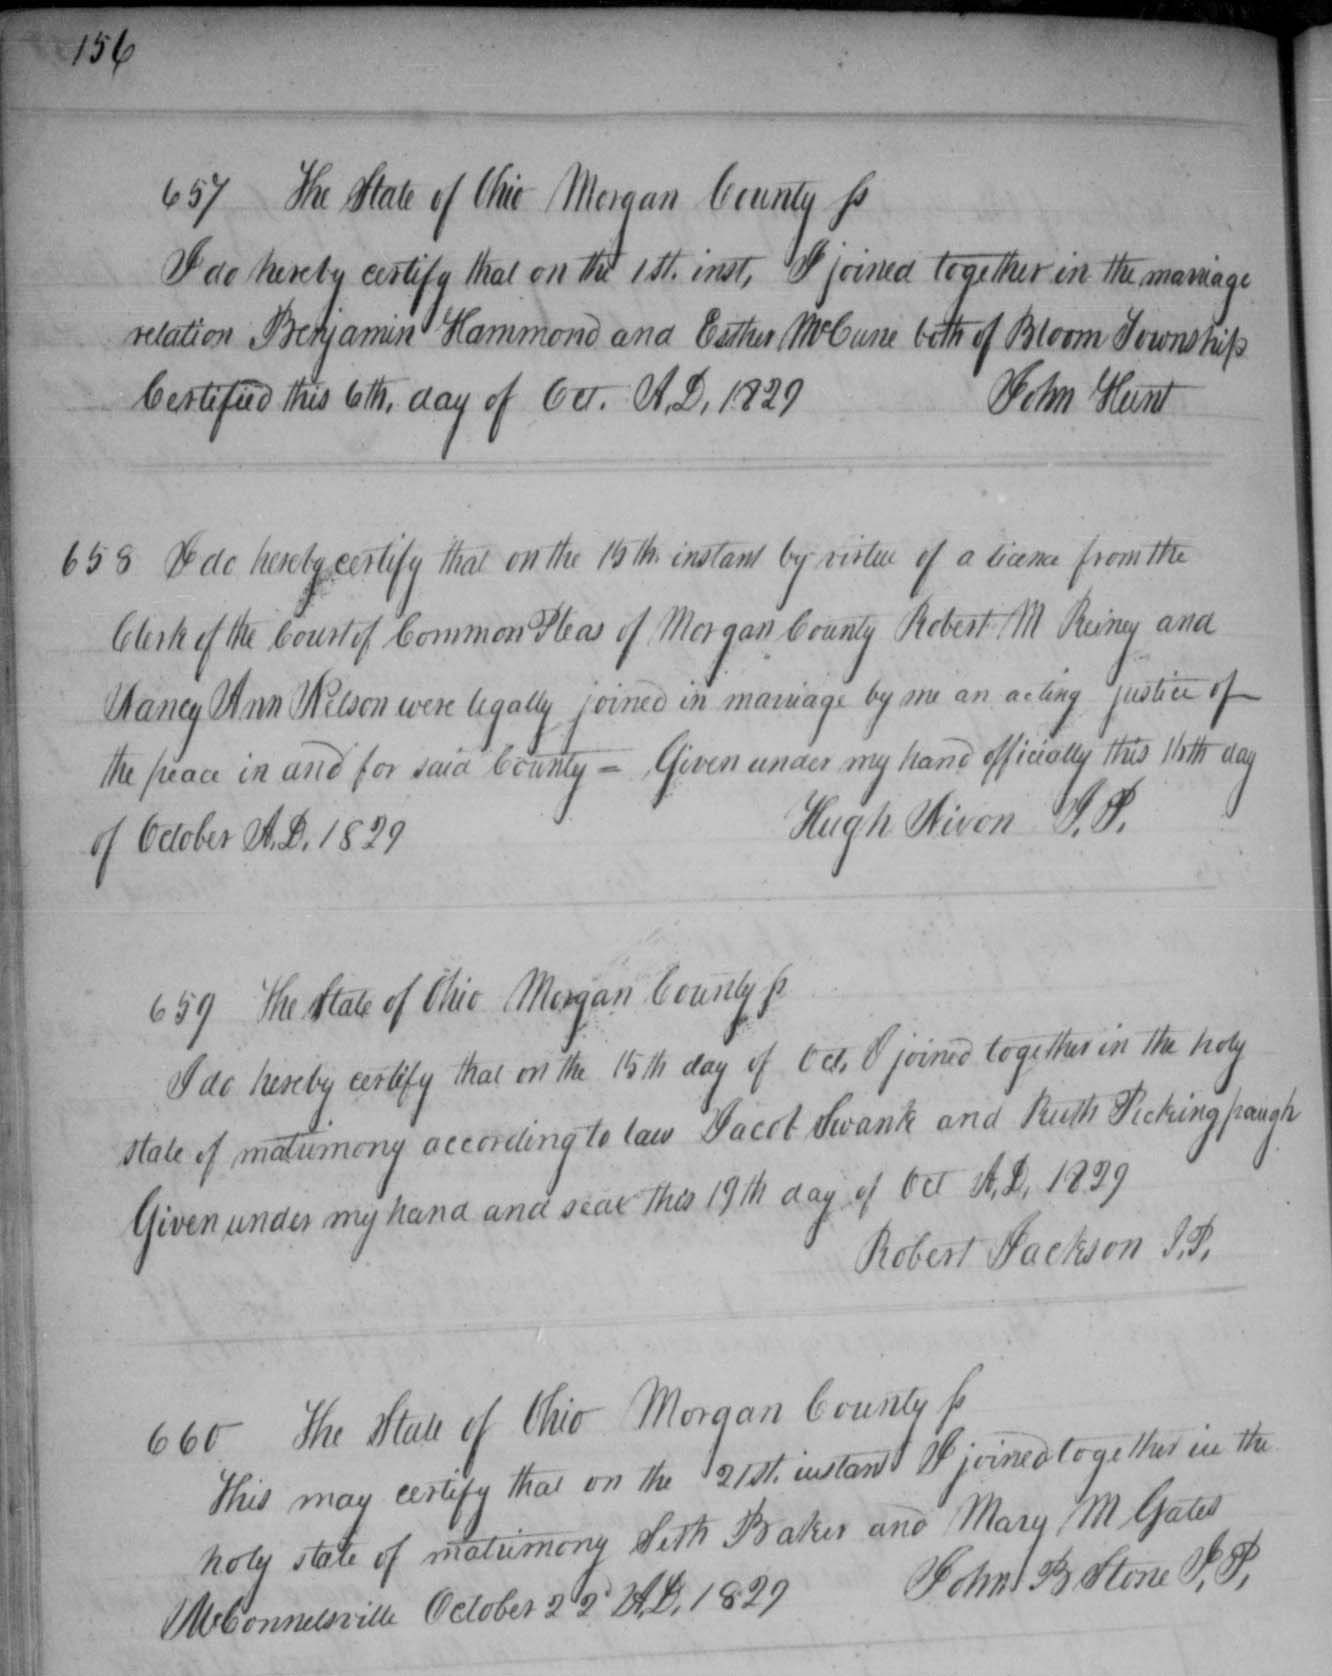 156
657 The State of Ohio Morgan County ss
I do hereby certify that on the 1st. inst, I joined together in the marriage
relation Benjamin Hammond and Esther McCune both of Bloom Township
Certified this 6th, day of Oct. A,D, 1829 John Hunt
658 I do hereby certify that on the 15th. instant by virtue of a licence from the
Clerk of the Court of Common Pleas of Morgan County Robert M Reiney and
Nancy Ann Wilson were legally joined in marriage by me an acting justice of
the peace in and for said County = Given under my hand officially this 15th day
of October A.D, 1829 Hugh Nixon J,P,
659 The State of Ohio Morgan County ss
I do hereby certify that on the 15th day of Oct, I joined together in the holy
state of matrimony according to law Jacob Swank and Ruth Pickingpaugh
Given under my hand and seal this 19th day of Oct A,D, 1829
Robert Jackson J.P,
660 The State of Ohio Morgan County ss
This may certify that on the 21st. instant I joined together in the
holy state of matrimony Seth Baker and Mary M Gates
McConnelsville October 22d A,D, 1829 John B Stone J,P,